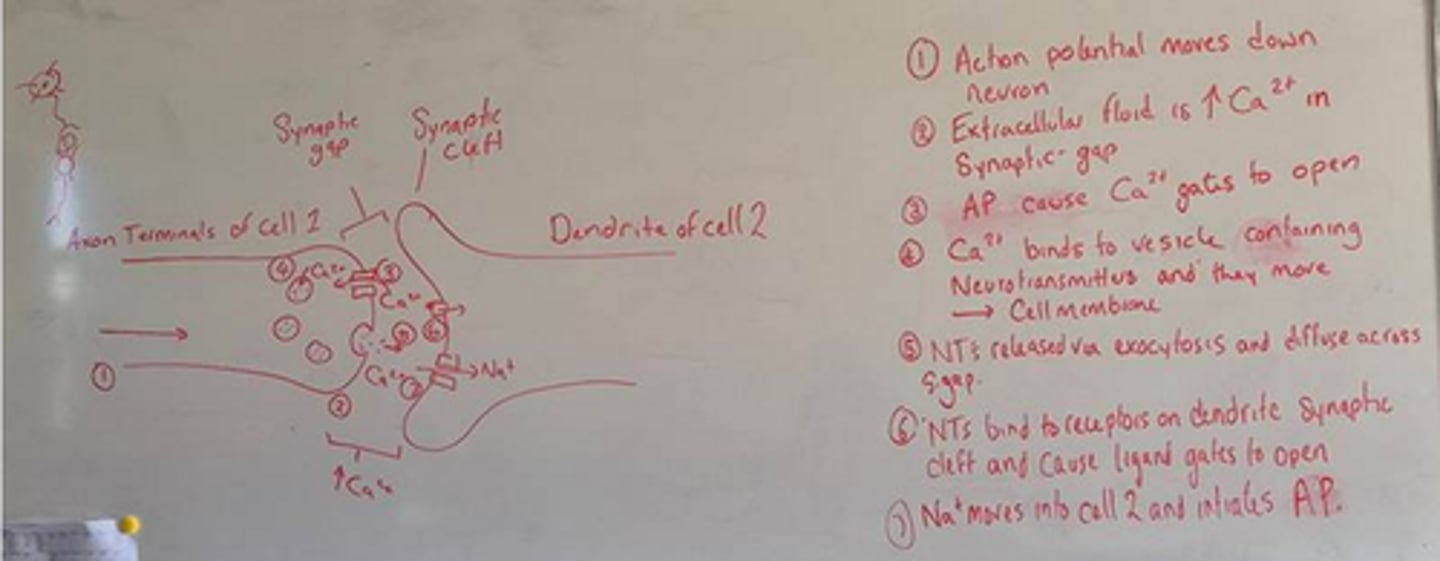 Synaptic
gap
Synaptic
cleft
Axon Terminals of cell 1
Dendrite of cell 2
④ Ca²⁺ ③
Ca²⁺
⑥
①
Ca²⁺ ⑦ Na⁺
②
↑Ca²⁺
① Action potential moves down
neuron
② Extracellular fluid is ↑Ca²⁺ in
Synaptic gap
③ AP cause Ca²⁺ gates to open
④ Ca²⁺ binds to vesicle containing
Neurotransmitters and they move
→ Cell membrane
⑤ NTs released via exocytosis and diffuse across
S.gap.
⑥ NTs bind to receptors on dendrite Synaptic
cleft and cause ligand gates to open
⑦ Na⁺ moves into cell 2 and intiates AP.